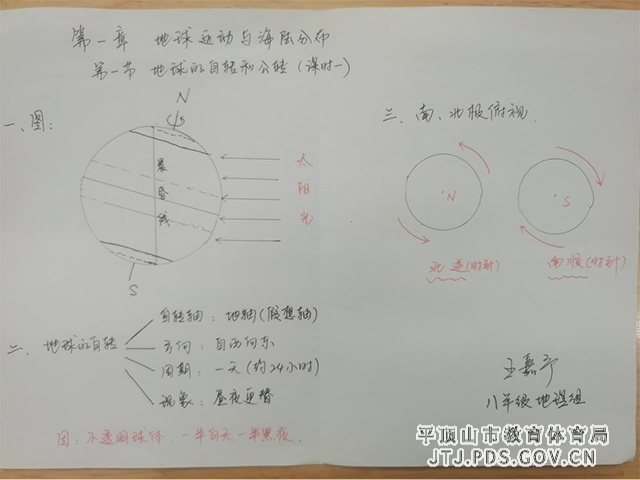 第一章 地球运动与海陆分布
第一节 地球的自转和公转(课时一)
一、图:
N
晨
昏
线
太
阳
光
S
二、地球的自转
自转轴:地轴(假想轴)
方向:自西向东
周期:一天(约24小时)
现象:昼夜更替
因:不透明球体,一半白天一半黑夜.
三、南、北极俯视.
N
S
北逆(时针)
南顺(时针)
王嘉宁
八年级地理组
平顶山市教育体育局
JTJ.PDS.GOV.CN